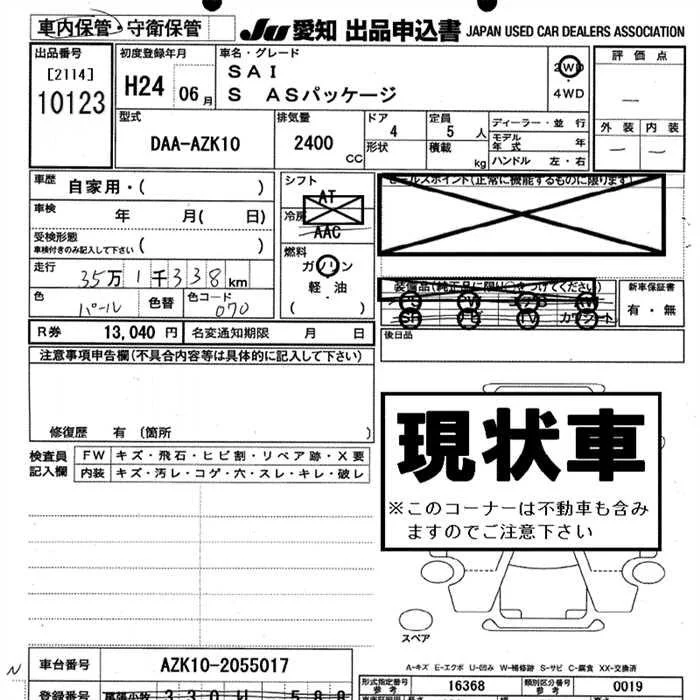 車内保管・守衛保管
Ju 愛知 出品申込書 JAPAN USED CAR DEALERS ASSOCIATION
出品番号
[2114]
10123
初度登録年月
H24 06月
車名・グレード
SAI
S ASパッケージ
2WD
4WD
評価点
外装 内装
型式
DAA-AZK10
排気量
2400 CC
ドア
4
形状
定員
5人
積載 kg
ディーラー・並行
モデル年式 年
ハンドル 左・右
車歴 自家用・( )
車検 年 月( 日)
受検形態
車検付きのみ記入して下さい ( )
走行 35万1千338km
色 パール 色替 色コード 070
シフト
AT
冷房
AAC
燃料
ガソリン
軽・油
( )
セールスポイント(正常に機能するものに限ります)
装備品(純正品に限り○をつけてください)
新車保証書
有・無
R券 13,040円 名変通知期限 月 日
後日品
注意事項申告欄(不具合内容等は具体的に記入して下さい)
修復歴 有 〔箇所 〕
検査員記入欄
FW キズ・飛石・ヒビ割・リペア跡・X要
内装 キズ・汚レ・コゲ・穴・スレ・キレ・破レ
現状車
※このコーナーは不動車も含みますのでご注意下さい
スペア
A-キズ E-エクボ U-凹み W-補修跡 S-サビ C-腐食 XX-交換済
N
車台番号 AZK10-2055017
型式指定番号 参考 16368 類別区分番号 参考 0019
登録番号